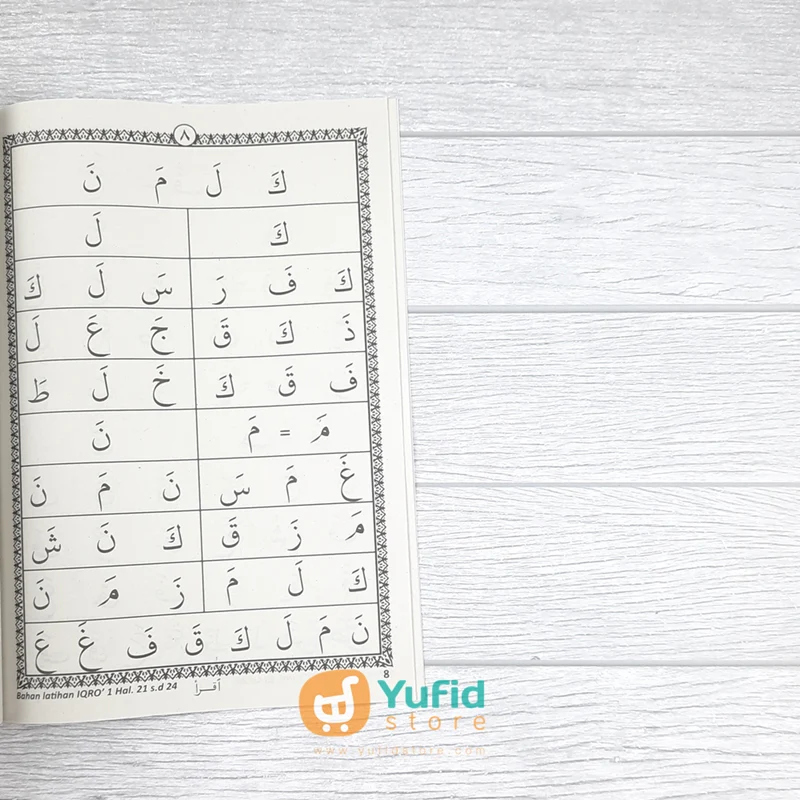 ٨
كَ لَ مَ نَ
كَ لَ
كَ فَ رَ سَ لَ كَ
ذَ كَ قَ جَ عَ لَ
فَ قَ كَ خَ لَ طَ
مَ = مَ نَ
غَ مَ سَ نَ مَ نَ
مَ زَ قَ كَ نَ شَ
كَ لَ مَ زَ مَ نَ
نَ مَ لَ كَ قَ فَ غَ عَ
8
Bahan latihan IQRO' 1 Hal. 21 s.d 24 اَقرأ
Yufid
store
www.yufidstore.com